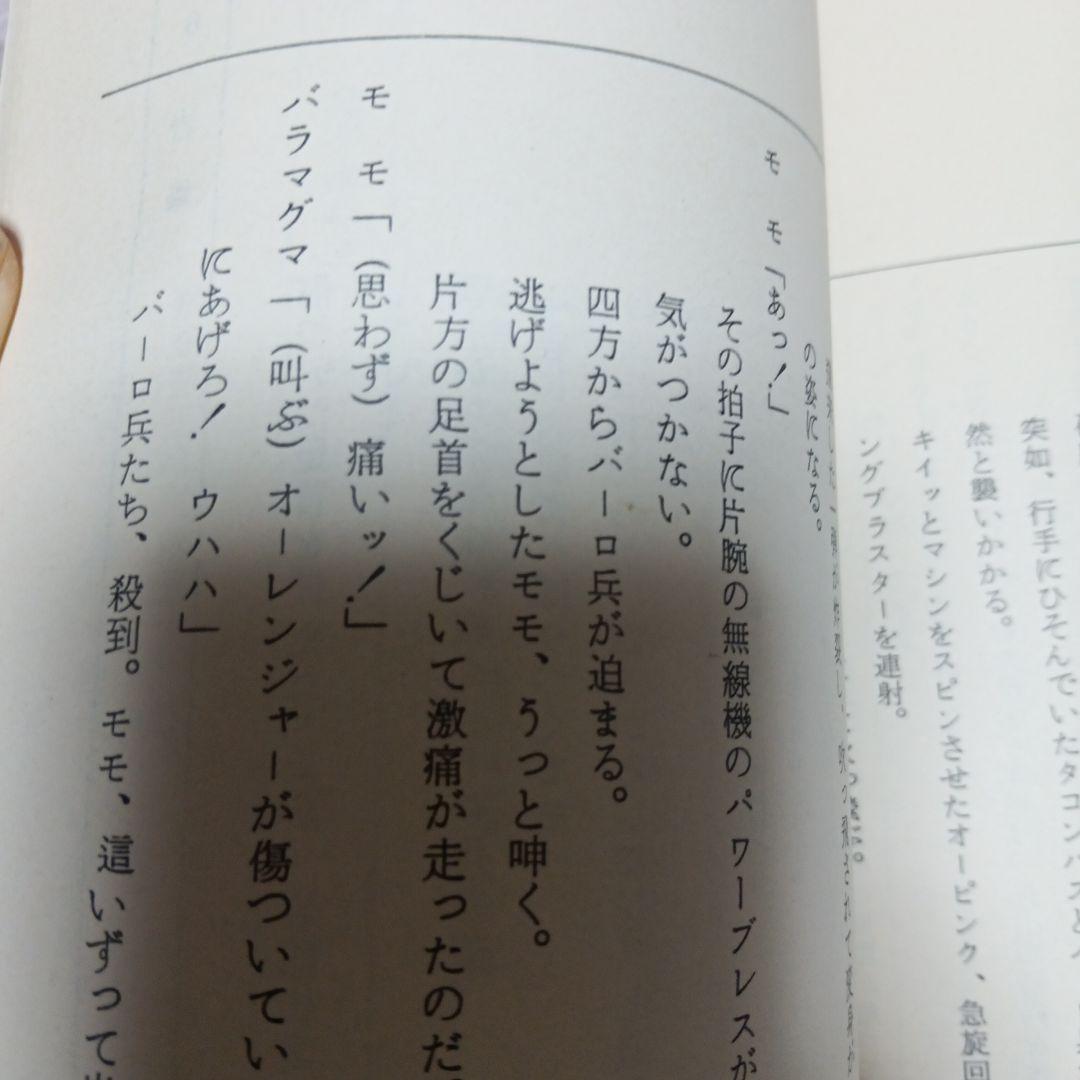 突如、行手にひそんでいたタコンパスと
然と襲いかかる。
キイッとマシンをスピンさせたオーピンク、急旋回
ングブラスターを連射。
の姿になる。
モ　モ「あっ！」
その拍子に片腕の無線機のパワーブレスが
気がつかない。
四方からバーロ兵が迫まる。
逃げようとしたモモ、うっと呻く。
片方の足首をくじいて激痛が走ったのだ。
モ　モ「（思わず）痛いッ！」
バラマグマ「（叫ぶ）オーレンジャーが傷ついてい
にあげろ！　ウハハ」
バーロ兵たち、殺到。モモ、這いずって